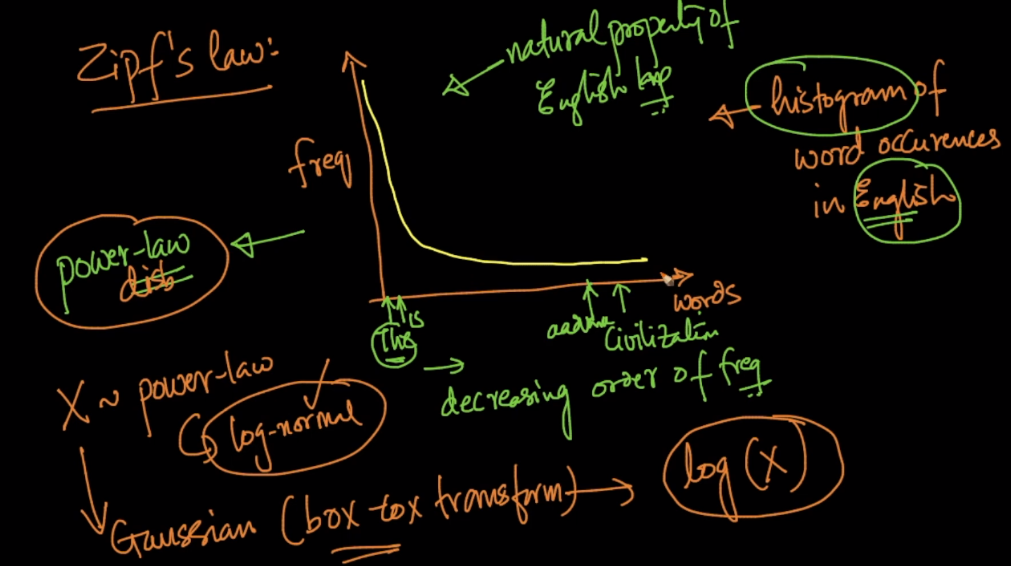 Zipf's law:
natural property of
English
histogram of
word occurences
in English
freq
power-law
dist
words
The
is
Civilization
decreasing order of freq
X ~ power-law
log-normal
Gaussian (box-cox transform)
log (X)